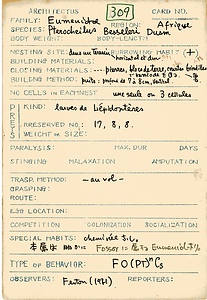 ARCHITECTUS 309 CARD NO.
FAMILY: Eumenidae REGION: Afrique
SPECIES: Pterocheilus Besseloni Dusm
BODY WEIGHT: BODY-LENGTH:
NESTING SITE: dans un terrain BURROWING HABIT (+)
horizontal et dur
BUILDING MATERIALS:
CLOSING MATERIALS: pierres, blocs de terre,
BUILDING METHOD: puits: de 7 à 8 cm,
NO CELLS IN EACH NEST une seule ou 3 cellules
PREY
KIND: larves de Lépidoptères
PRESERVED NO.: 17, 8, 8.
WEIGHT OR SIZE:
PARALYSIS: MAX. DUR DAYS
STINGING MALAXATION AMPUTATION
TRASP. METHOD: — au vol —
GRASPING:
ROUTE:
EGG LOCATION:
COMPETITION COLONIZATION SOCIALIZATION
SPECIAL HABITS: cheminée なし,
Fossor Eumenid
TYPE OF BEHAVIOR: FO(PT)ⁿCs
OBSERVERS: Ferton (1901) REPORTERS: